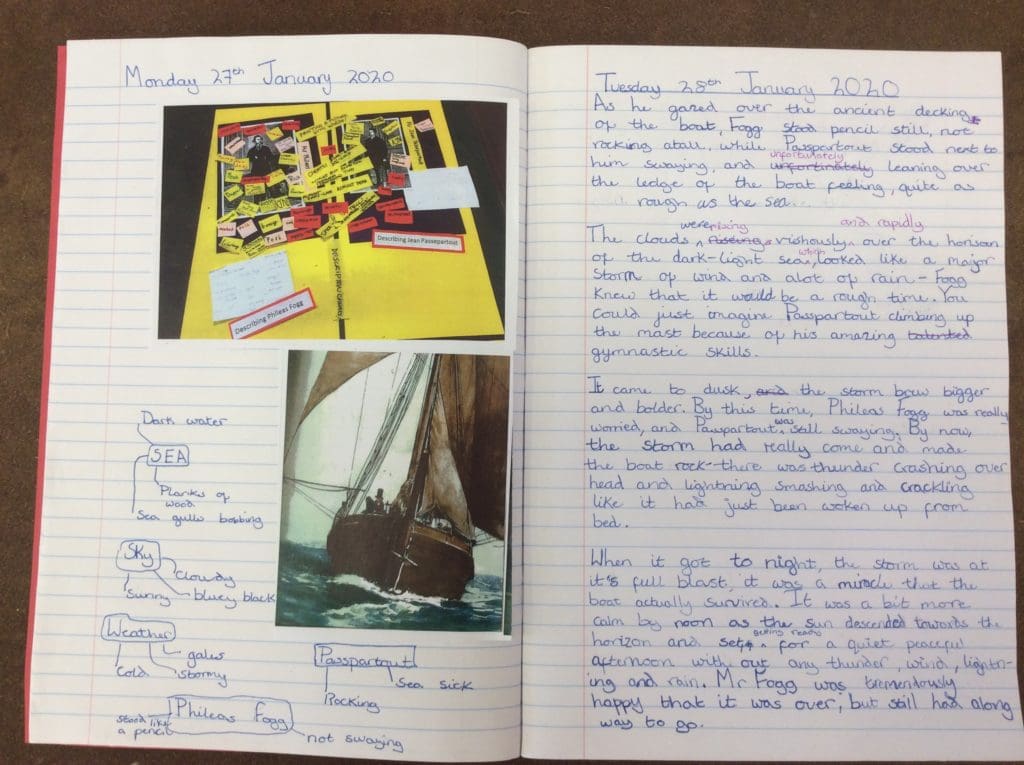 Monday 27th January 2020
Describing Jean Passepartout
Describing Phileas Fogg
Dark water
SEA
Planks of
wood
Sea gulls bobbing
Sky
Cloudy
Sunny
bluey black
Weather
gales
Cold
stormy
Passpartout
Sea sick
Rocking
Phileas Fogg
stood like
a pencil
not swaying
Tuesday 28th January 2020
As he gazed over the ancient decking
of the boat, Fogg stood pencil still, not
rocking atall, while Passpartout stood next to
unfortunately
him swaying, and unfortinately leaning over
the ledge of the boat feeling, quite as
rough as the sea.
were rising and rapidly
The clouds vishously over the horison
which
of the dark-light sea, looked like a major
storm of wind and alot of rain - Fogg
knew that it would be a rough time. You
could just imagine Passpartout climbing up
the mast because of his amazing talented
gymnastic skills.
It came to dusk, and the storm brew bigger
and bolder. By this time, Phileas Fogg was really
was
worried, and Passpartout still swaying. By now,
the storm had really come and made
the boat rock - there was thunder crashing over
head and lightning smashing and crackling
like it had just been woken up from
bed.
When it got to night, the storm was at
it's full blast, it was a miracle that the
boat actually survived. It was a bit more
calm by noon as the sun descended towards the
getting ready
horizon and for a quiet peaceful
afternoon with out any thunder, wind, lightn-
ing and rain. Mr Fogg was tremendously
happy that it was over, but still had along
way to go.